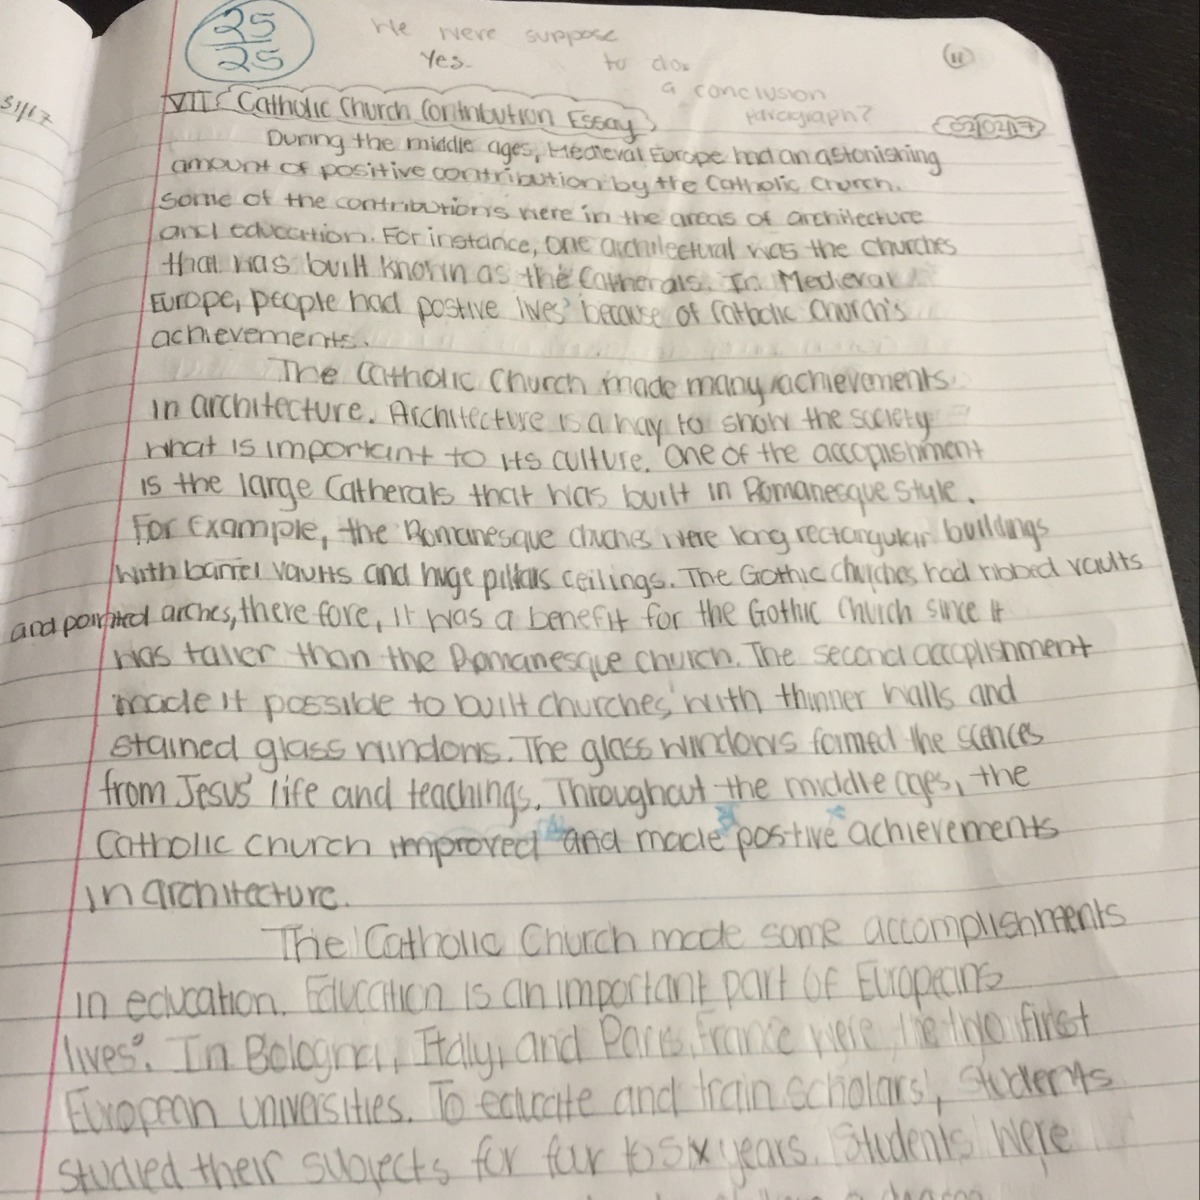 31/17
25
25
We were suppose
Yes.
to do.
a conclusion
paragraph?
11
02/02/17
VII: Catholic Church Contribution Essay
During the middle ages, Medieval Europe had an astonishing
amount of positive contribution by the Catholic Church.
Some of the contributions were in the areas of architecture
and education. For instance, one architectural was the churches
that was built known as the Catherals. In Medieval
Europe, people had postive lives' because of Catholic Church's
achievements.
The Catholic Church made many achievements
in architecture. Architecture is a way to show the society
what is important to its culture. One of the accoplishment
is the large Catherals that was built in Romanesque style.
For Example, the Romanesque chuches were long rectangular buildings
with barrel vaults and huge pillars ceilings. The Gothic churches had ribbed vaults
and pointed arches, there fore, it was a benefit for the Gothic Church since it
was taller than the Romanesque church. The second accoplishment
made it possible to built churches with thinner walls and
stained glass windows. The glass windows formed the scences
from Jesus' life and teachings. Throughout the middle ages, the
Catholic church improved and made postive achievements
in architecture.
The Catholic Church made some accomplishments
in education. Education is an important part of Europeans
lives'. In Bologna, Italy, and Paris, France were the two first
European universities. To educate and train scholars, students
studied their subjects for four to six years. Students were